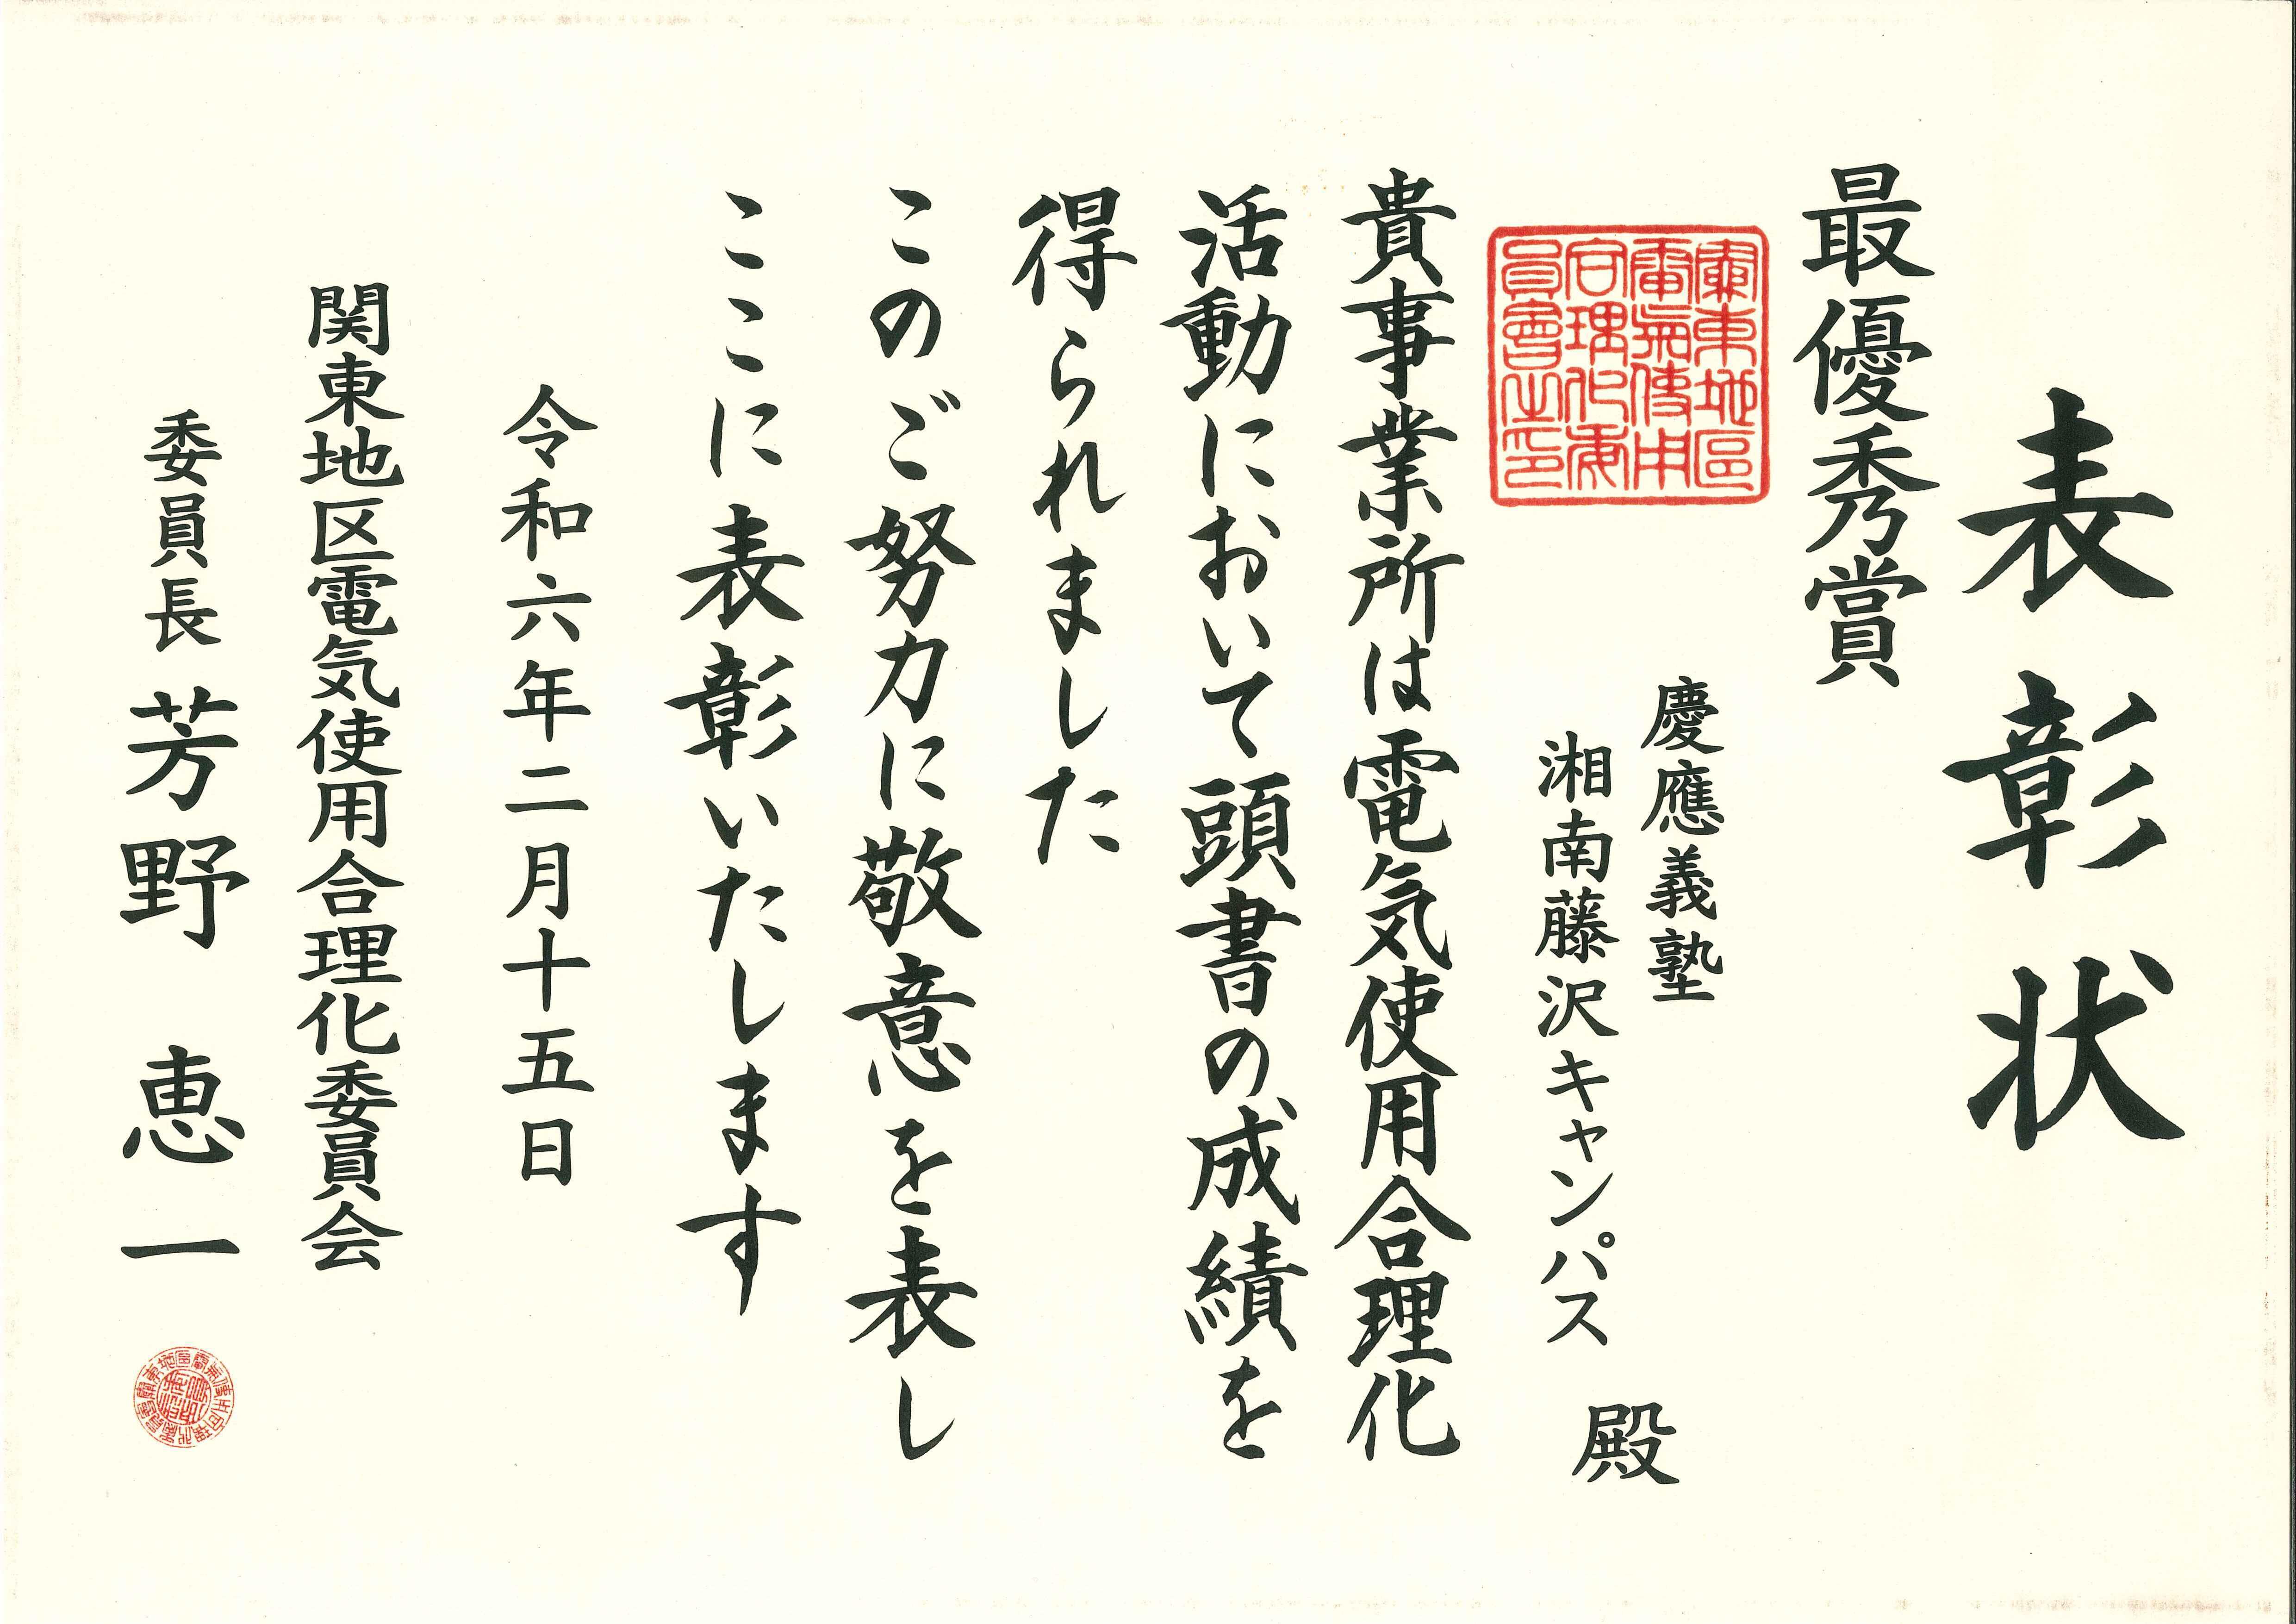 表彰状
最優秀賞
慶應義塾
湘南藤沢キャンパス 殿
貴事業所は電気使用合理化
活動において頭書の成績を
得られました
このご努力に敬意を表し
ここに表彰いたします
令和六年二月十五日
関東地区電気使用合理化委員会
委員長 芳野 恵一
關東地區
電氣使用
合理化委
員會之印